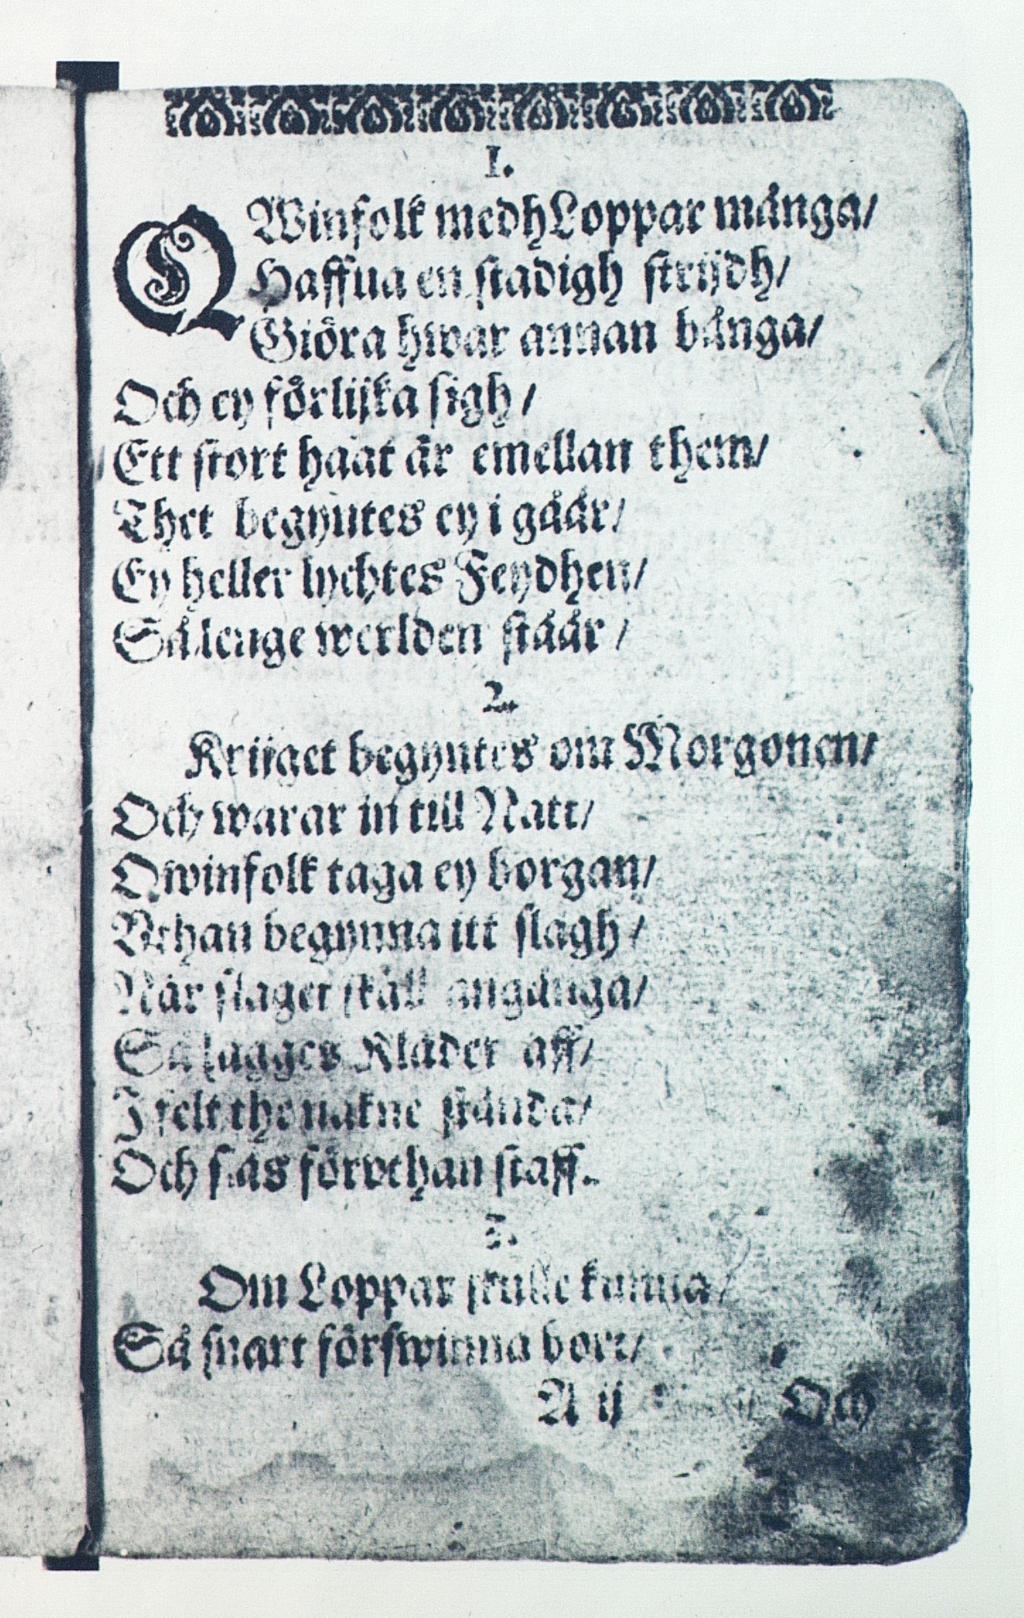 I.
QWinfolk medh Loppar många/
Haffua en stadigh strijdh/
Giöra hwar annan bånga/
Och ey förlijka sigh/
Ett stort haat är emellan them/
Thet begyntes ey i gåår/
Ey heller lychtes Feydhen/
Så lenge werlden ståår/
2.
Krijget begyntes om Morgonen/
Och warar in till Natt/
Qwinfolk taga ey borgan/
Vthan begynna itt slagh/
När slaget skall angånga/
Så lägges Kläder aff/
I felt the nakne stånda/
Och slås förvthan staff.
3.
Om Loppar skulle kunna/
Så snart förswinna bort/
A ij Och